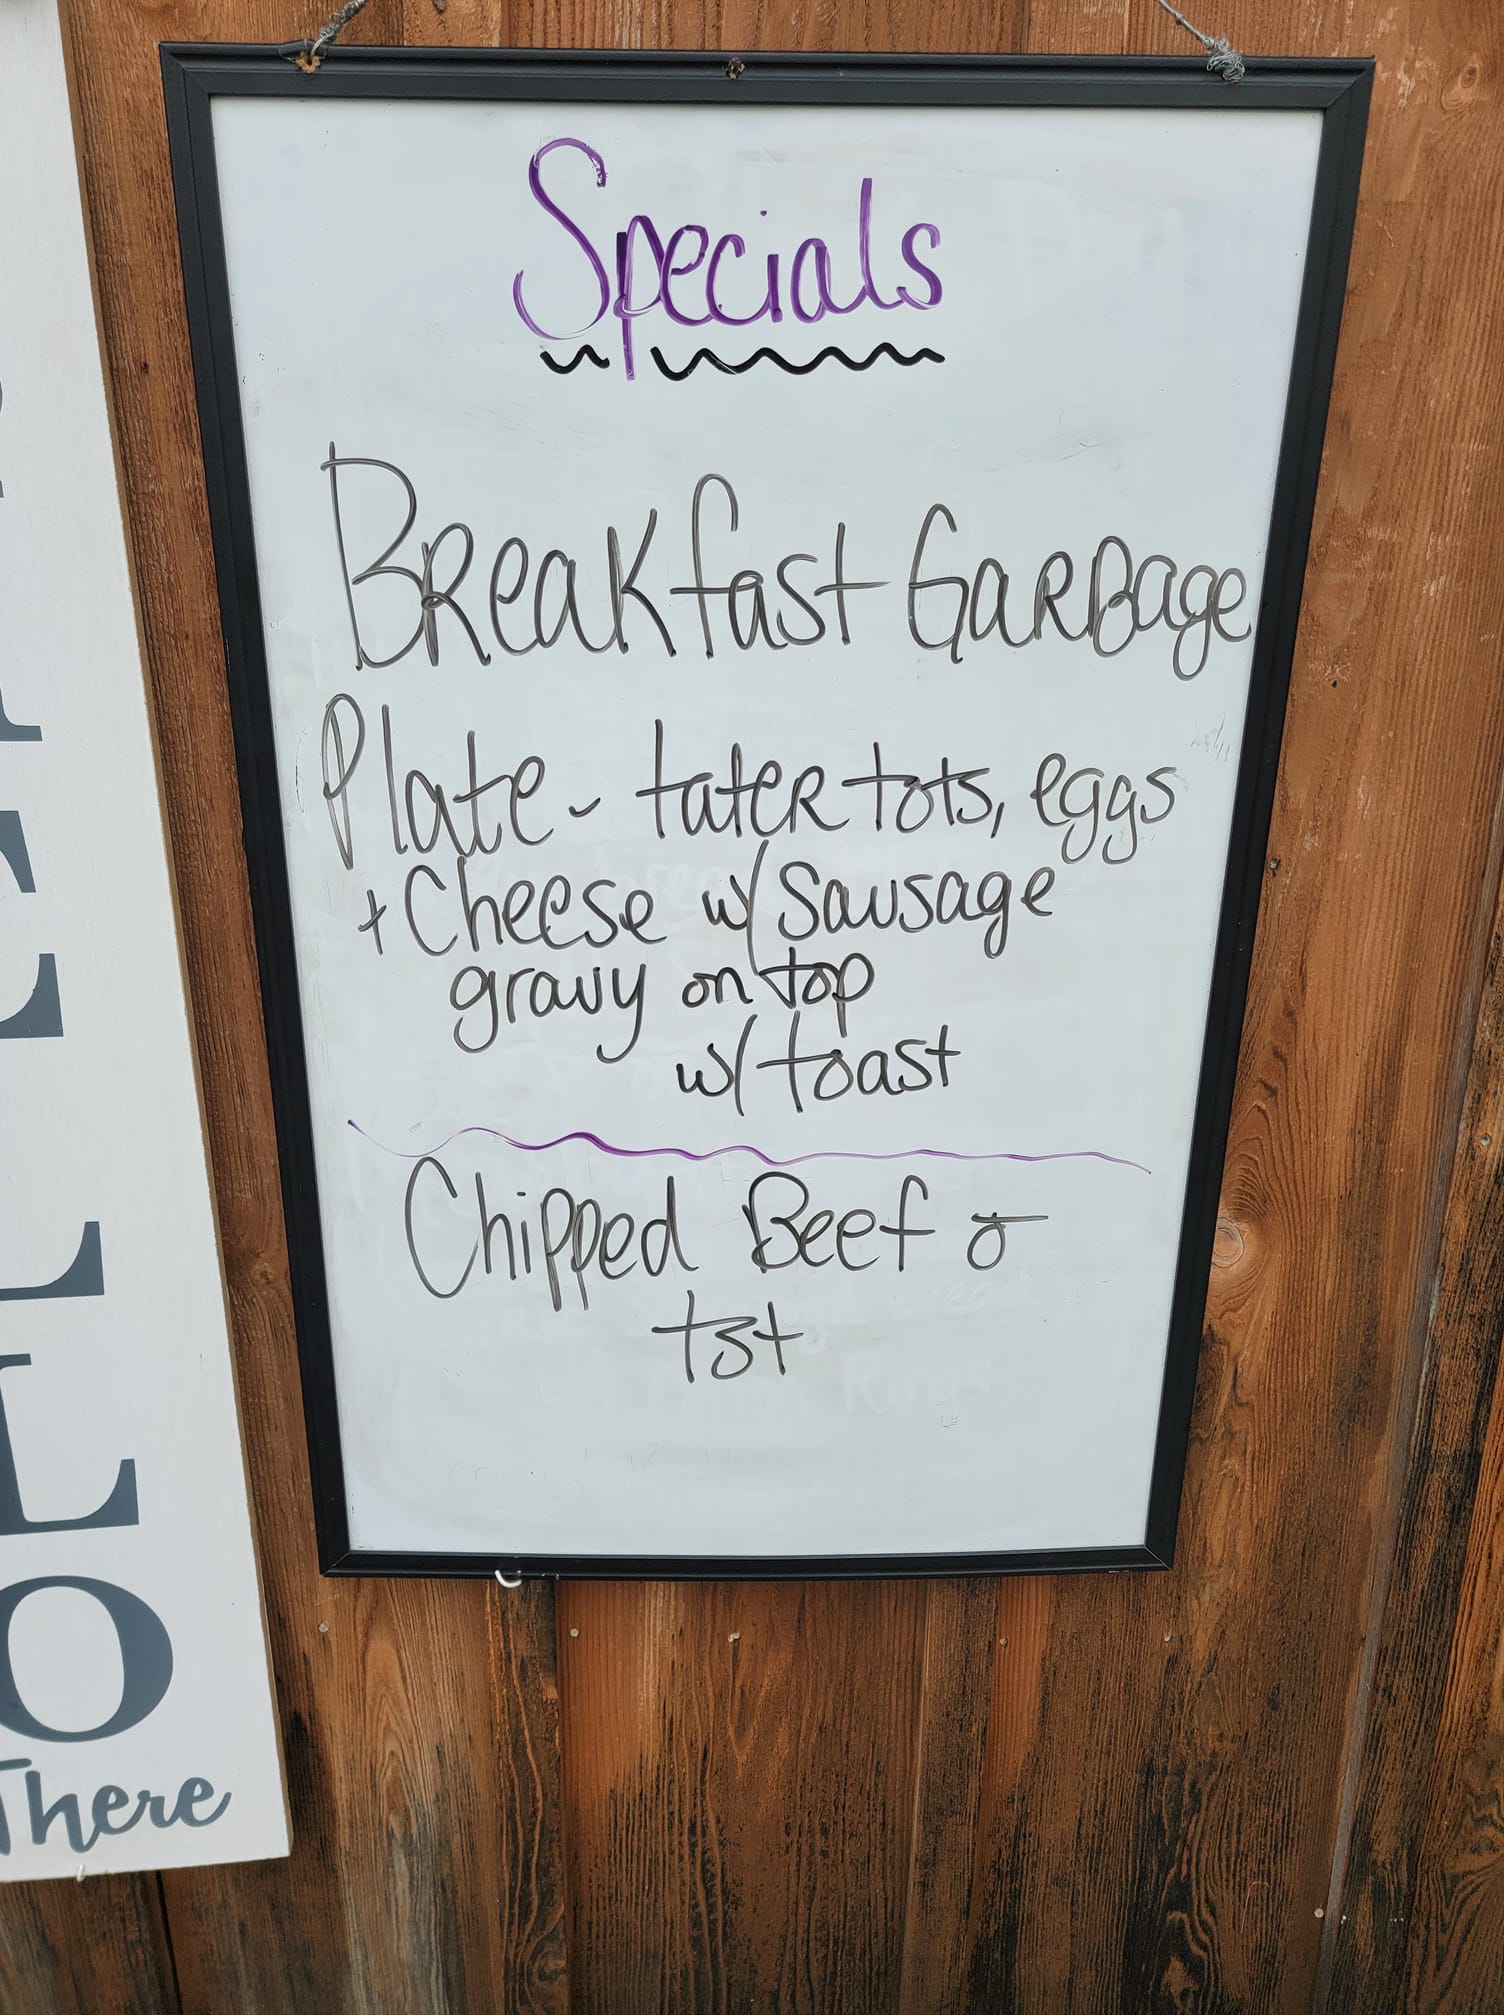 Specials
Breakfast Garbage
Plate - tater tots, eggs
+ Cheese w/ Sausage
gravy on top
w/ toast
Chipped Beef
tst
LLO
There